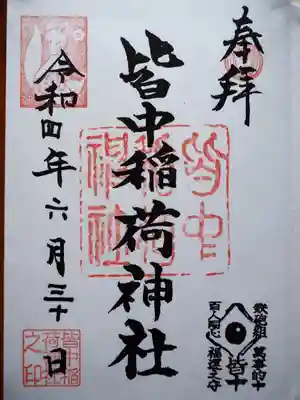 奉拝
皆中稲荷神社
令和四年六月三十日
皆中
稲荷
神社
皆中稲
荷神社
之印
鉄炮組
百人同心
皆中